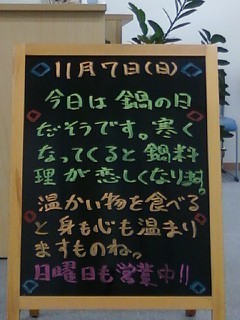 11月7日(日)
今日は鍋の日
だそうです。寒く
なってくると鍋料
理が恋しくなります。
温かい物を食べる
と身も心も温まり
ますものね。
日曜日も営業中!!